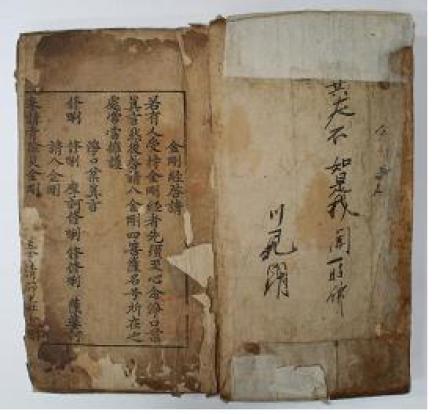 如是我聞一時佛
金剛經啓請
若有人受持金剛經者先須至心念淨口業
眞言然後啓請八金剛四菩薩名号所在之
處常當擁護
淨口業眞言
修唎 修唎 摩訶修唎 修修唎 薩婆訶
請八金剛
奉請青除災金剛